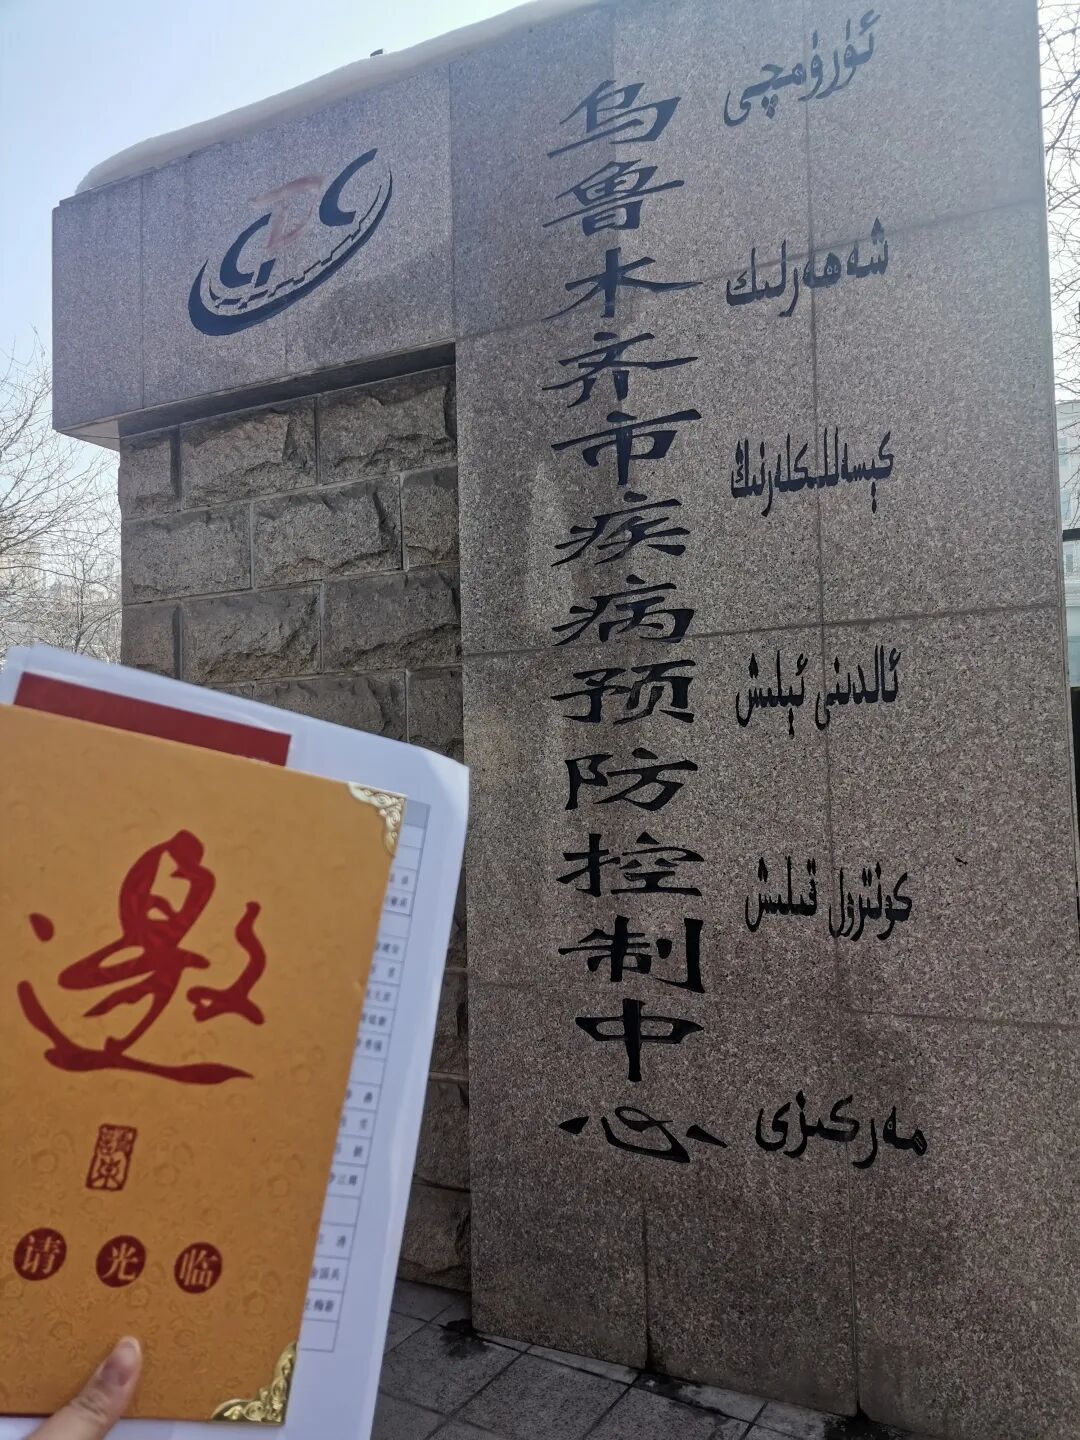 CDC
乌鲁木齐市疾病预防控制中心
ئۈرۈمچى
شەھەرلىك
كېسەللىكلەرنىڭ
ئالدىنى ئېلىش
كونترول قىلىش
مەركىزى
邀
请光临